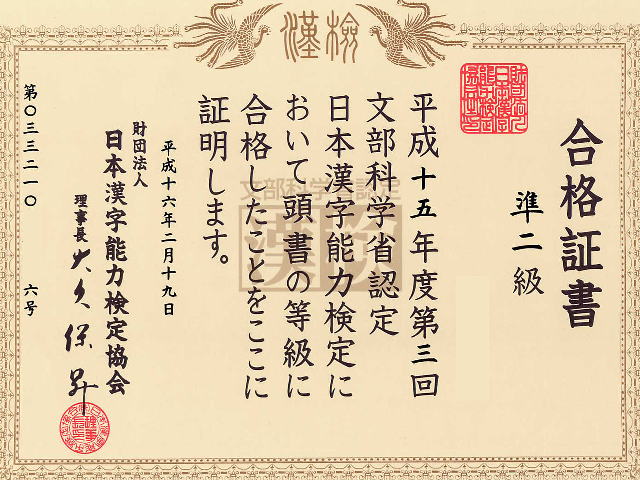 漢検
合格証書
準二級
平成十五年度第三回
文部科学省認定
日本漢字能力検定に
おいて頭書の等級に
合格したことをここに
証明します。
平成十六年二月十九日
財団法人
日本漢字能力検定協会
理事長 大久保昇
第〇三三二一〇六号
文部科学省認定
漢検